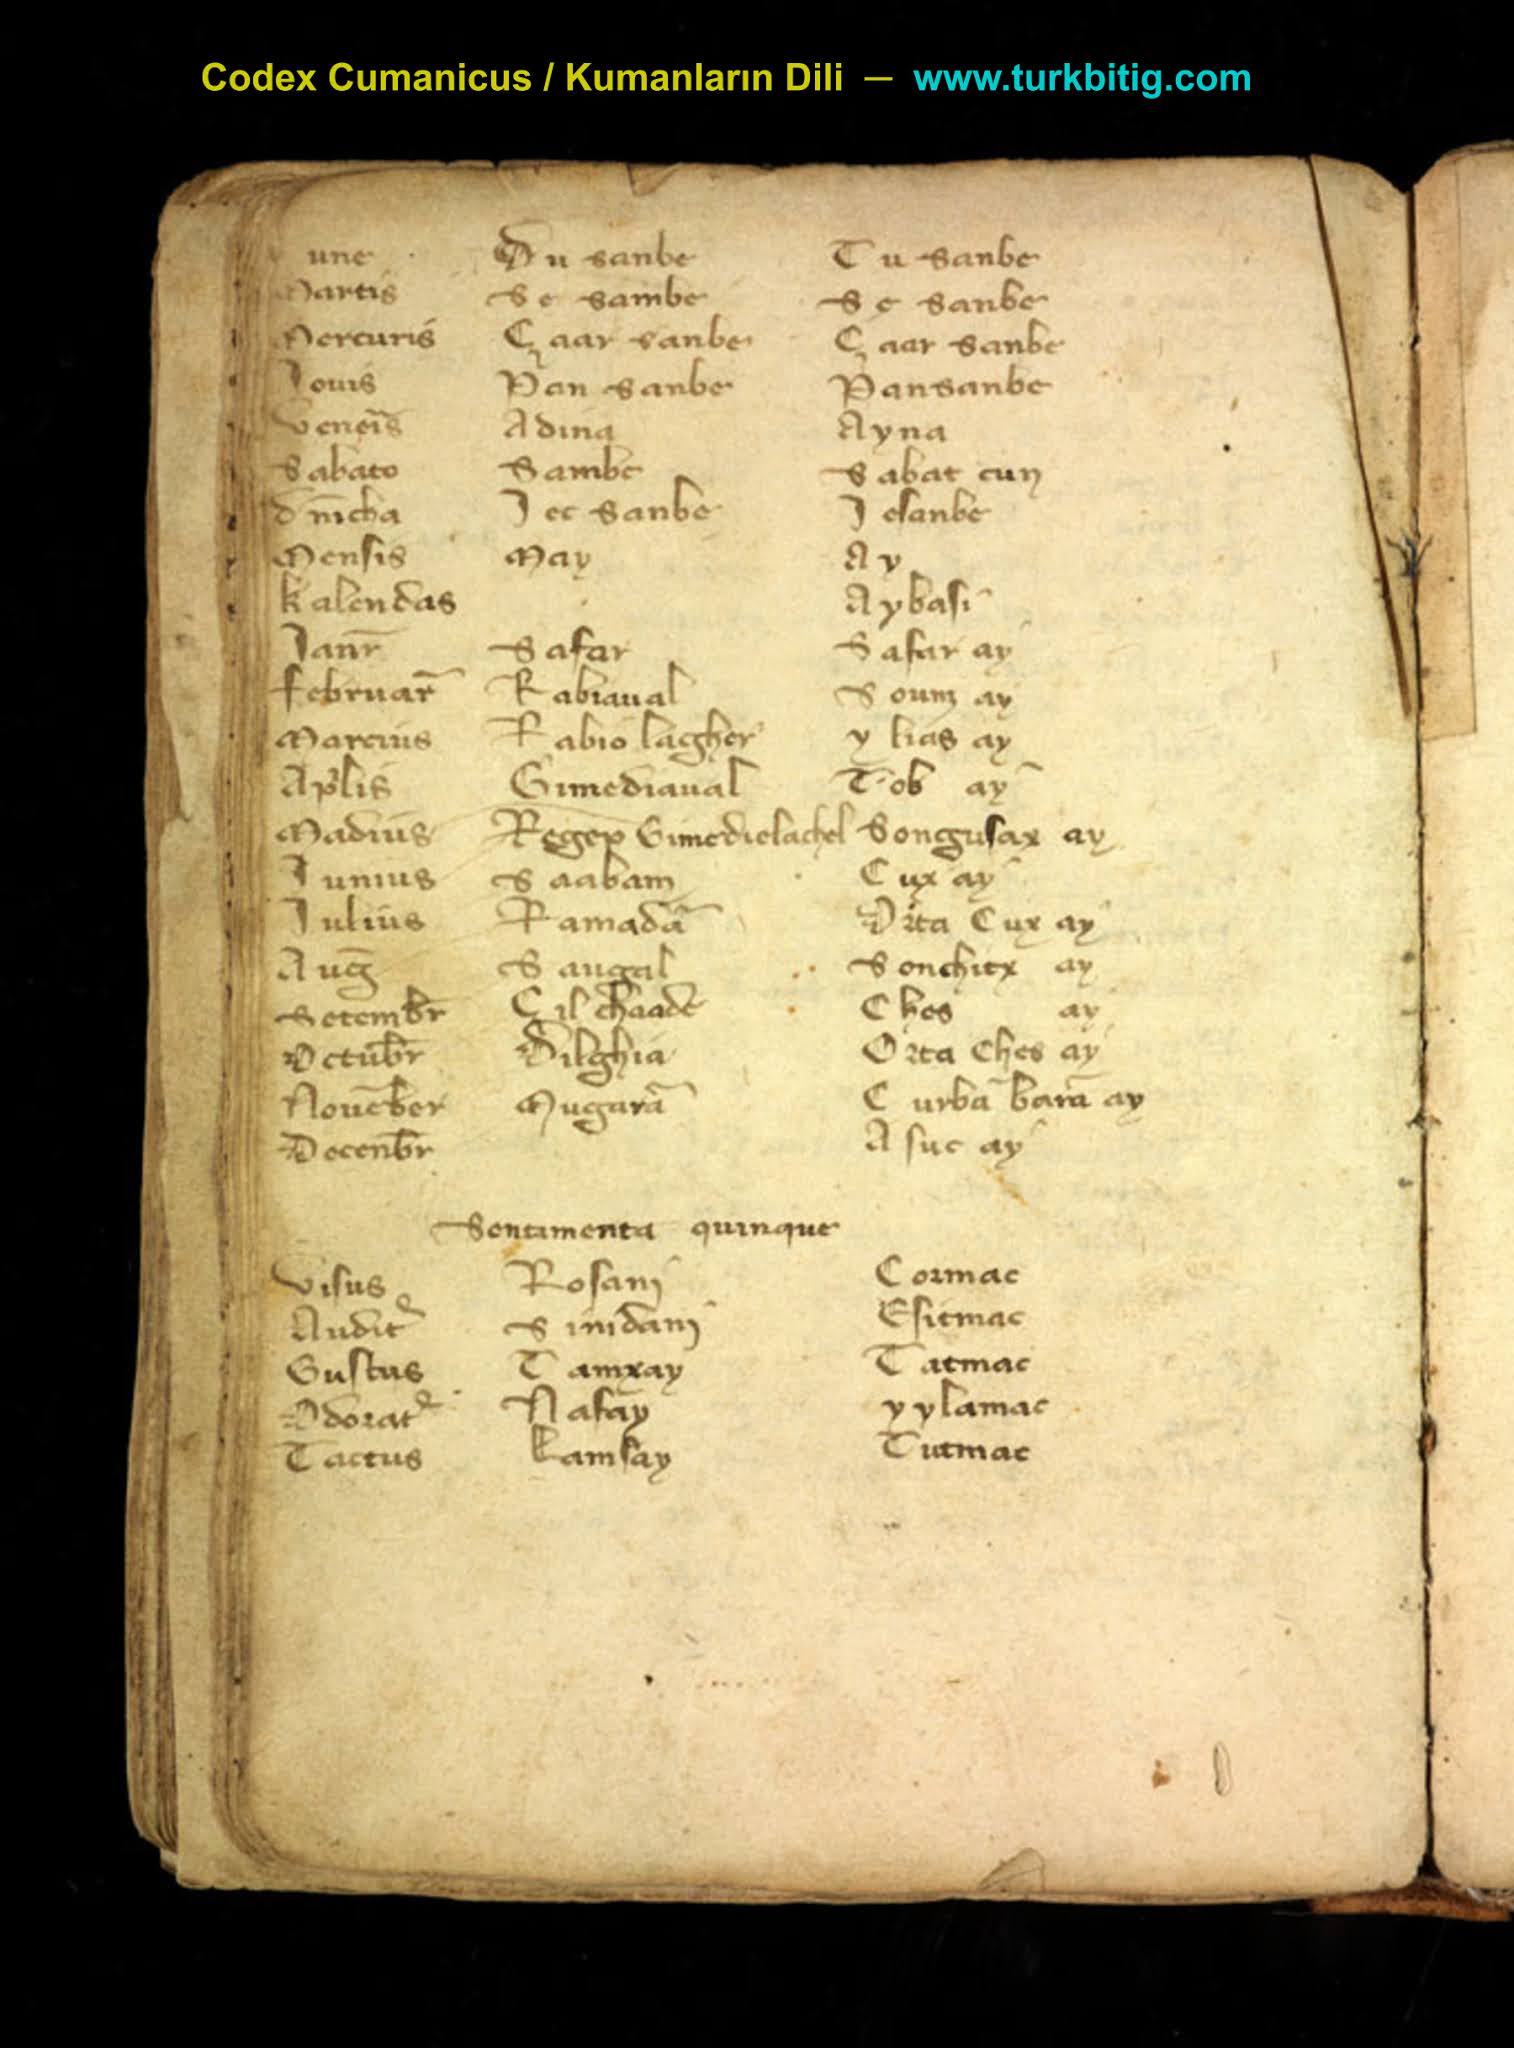 Codex Cumanicus / Kumanların Dili — www.turkbitig.com
une Du sanbe Tu sanbe
Martis Se sambe Se sanbe
Mercuris Çaar sanbe Çaar sanbe
Iouis Pan sanbe Pansanbe
Veneris Adina Ayna
Sabato Sambe Sabat cun
dnīcha Iec sanbe Iesanbe
Mensis May Ay
Kalendas Aybasi
Ianr̄ Safar Safar ay
Februar̄ Rabiaual Soum ay
Marcius Rabio lagher y lias ay
Aplis Gimediaual Tob ay
Madius Regep Gimedielachel Songusax ay
Iunius Saabam Cux ay
Iulius Ramadā Orta Cux ay
Auḡ Saugal Sonchux ay
Setembr̄ Cil chaadē Ckes ay
Octubr̄ Dilghia Orta Ches ay
Nouēber Mugarā Curbā barā ay
Decenbr̄ Asuc ay
Sentimenta quinque
Visus Rosani Cormac
Audit⁹ Sinidani Esitmac
Gustus Tamxay Tatmac
Odorat⁹ Nafay yylamac
Tactus Kamsay Tutmac